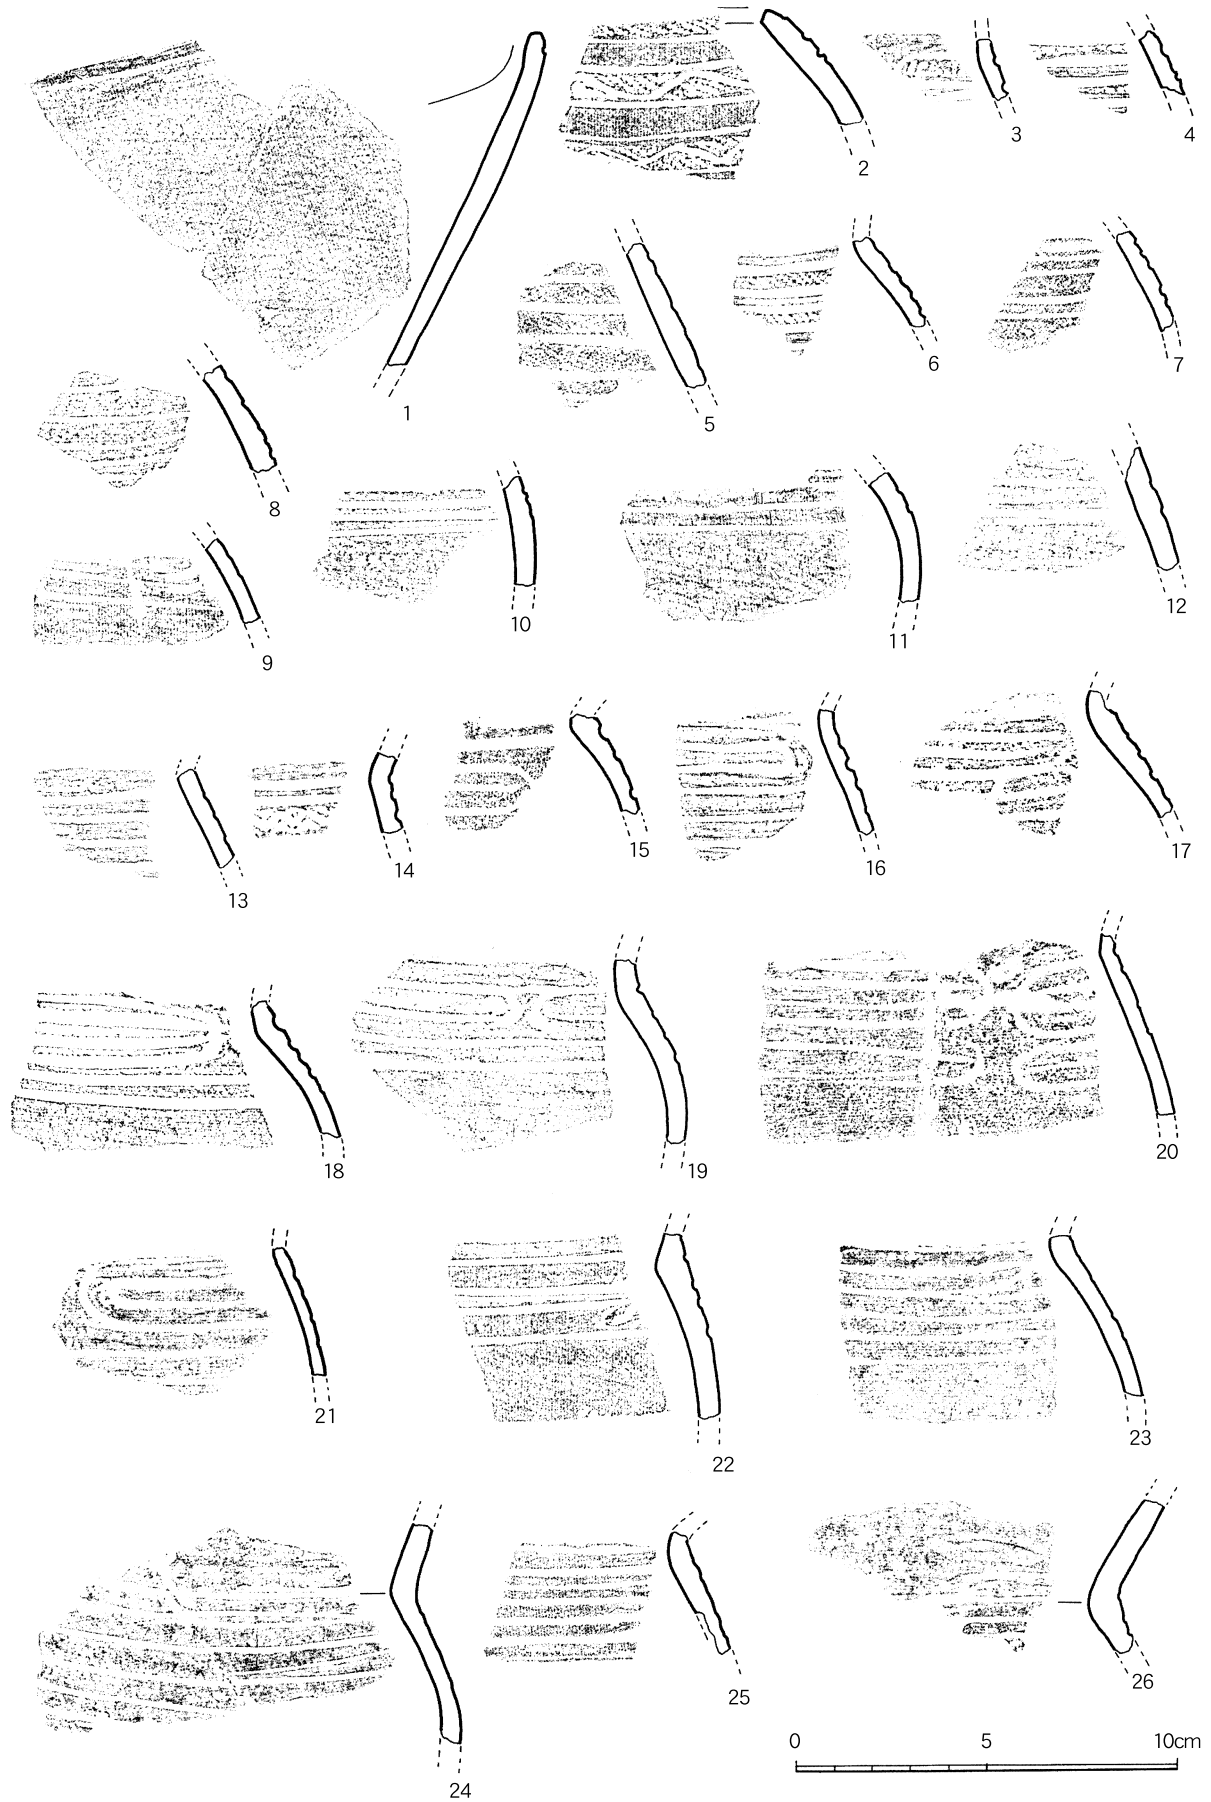 1
2
3
4
5
6
7
8
9
10
11
12
13
14
15
16
17
18
19
20
21
22
23
24
25
26
0 5 10cm